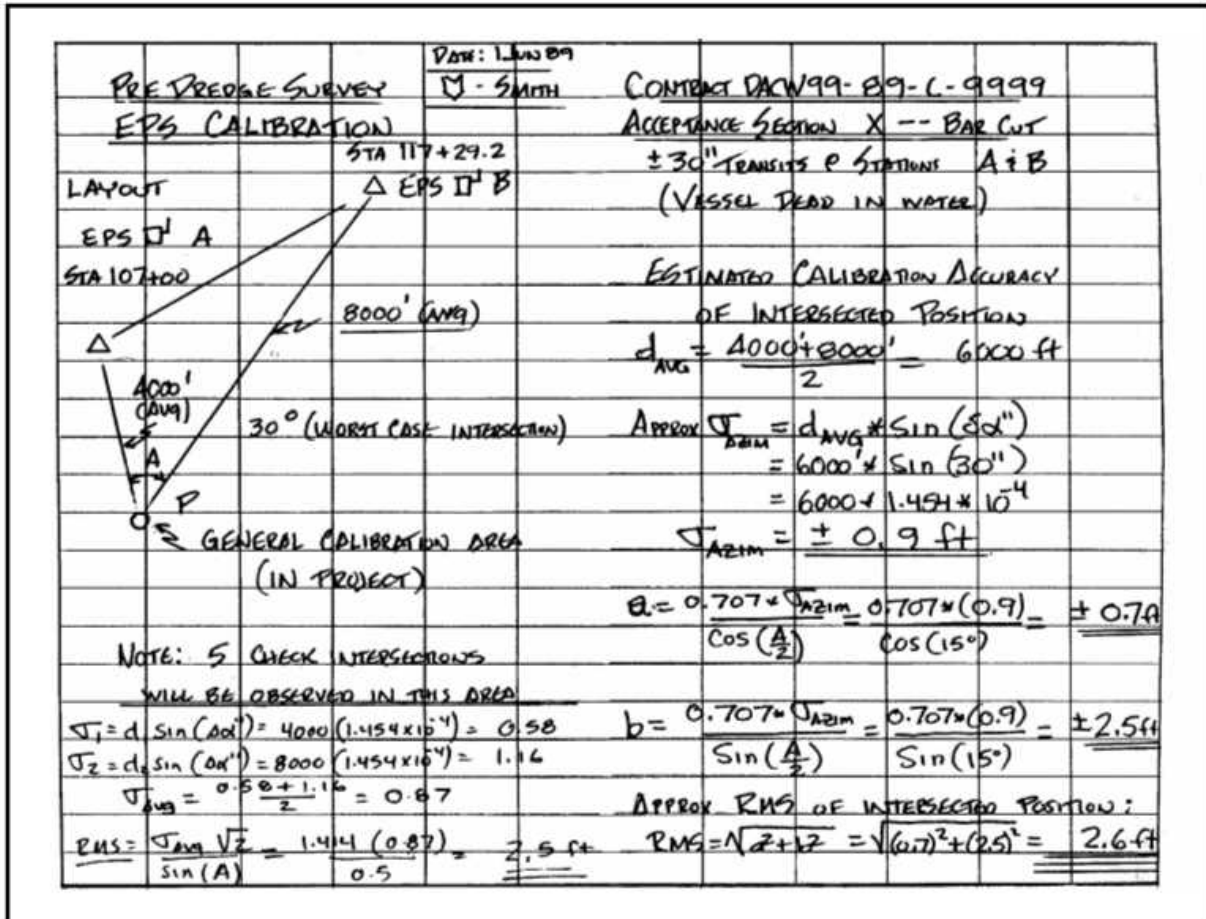 DATE: 1 JUN 89
PRE DREDGE SURVEY
- SMITH
EPS CALIBRATION
STA 117+29.2
LAYOUT
EPS B
EPS A
STA 107+00
8000' (AVG)
4000'
(AVG)
30° (WORST CASE INTERSECTION)
A
P
GENERAL CALIBRATION AREA
(IN PROJECT)
NOTE: 5 CHECK INTERSECTIONS
WILL BE OBSERVED IN THIS AREA
σ₁ = d₁ sin (Δα") = 4000 (1.454x10⁻⁴) = 0.58
σ₂ = d₂ sin (Δα") = 8000 (1.454x10⁻⁴) = 1.16
σ Avg = 0.58 + 1.16 / 2 = 0.87
RMS = σ Avg √2 / sin (A) = 1.414 (0.87) / 0.5 = 2.5 ft
CONTRACT DACW99-89-C-9999
ACCEPTANCE SECTION X -- BAR CUT
±30" TRANSITS @ STATIONS A & B
(VESSEL DEAD IN WATER)
ESTIMATED CALIBRATION ACCURACY
OF INTERSECTED POSITION
d AVG = 4000'+8000' / 2 = 6000 ft
APPROX σ AZIM = d AVG * Sin (δα")
= 6000' * Sin (30")
= 6000 * 1.454 * 10⁻⁴
σ AZIM = ± 0.9 ft
a = 0.707 * σ AZIM / Cos (A/2) = 0.707 * (0.9) / Cos (15°) = ± 0.7 ft
b = 0.707 * σ AZIM / Sin (A/2) = 0.707 * (0.9) / Sin (15°) = ± 2.5 ft
APPROX RMS OF INTERSECTED POSITION:
RMS = √a²+b² = √(0.7)²+(2.5)² = 2.6 ft